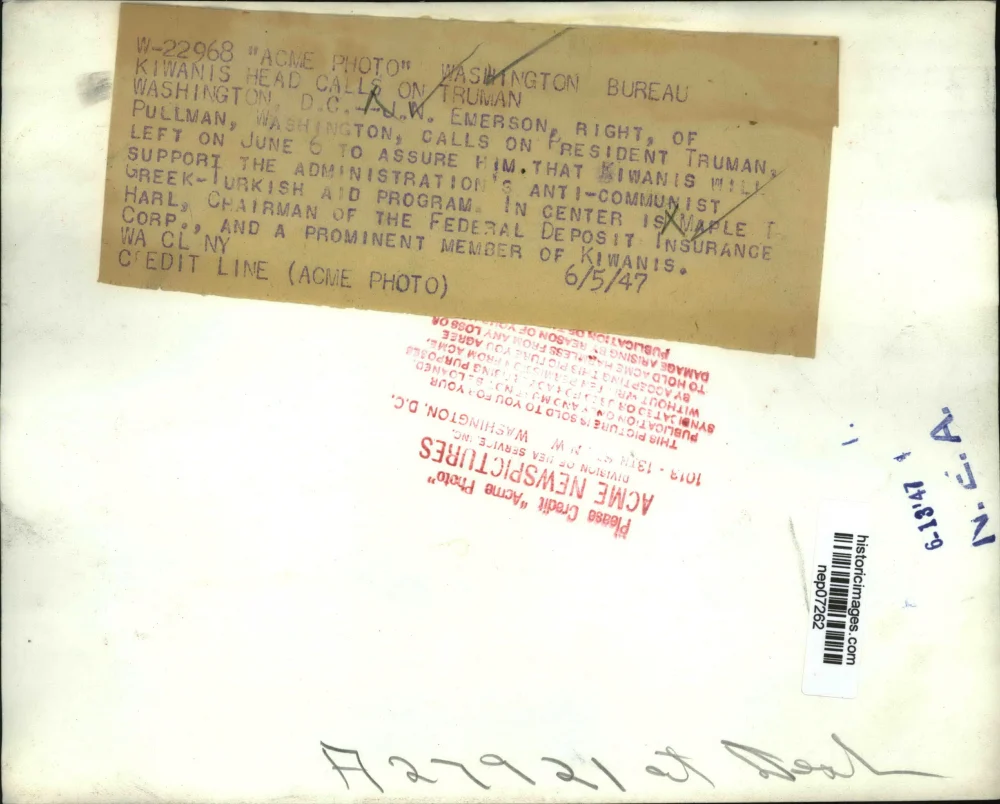 W-22968 "ACME PHOTO" WASHINGTON BUREAU
KIWANIS HEAD CALLS ON TRUMAN
WASHINGTON, D.C.--J.N. EMERSON, RIGHT, OF
PULLMAN, WASHINGTON, CALLS ON PRESIDENT TRUMAN,
LEFT ON JUNE 6 TO ASSURE HIM THAT KIWANIS WILL
SUPPORT THE ADMINISTRATION'S ANTI-COMMUNIST
GREEK-TURKISH AID PROGRAM. IN CENTER IS MAPLE T.
HARL, CHAIRMAN OF THE FEDERAL DEPOSIT INSURANCE
CORP., AND A PROMINENT MEMBER OF KIWANIS.
WA CL NY
CREDIT LINE (ACME PHOTO) 6/5/47
Please Credit "Acme Photo"
ACME NEWSPICTURES
DIVISION OF NEA SERVICE, INC.
1013 - 13TH ST. N. W. WASHINGTON, D.C.
THIS PICTURE IS SOLD TO YOU FOR YOUR
PUBLICATION ONLY AND MUST NOT BE LOANED
SYNDICATED OR USED FOR ADVERTISING PURPOSES
WITHOUT WRITTEN PERMISSION FROM ACME.
BY ACCEPTING THIS PICTURE YOU AGREE
TO HOLD ACME HARMLESS FROM ANY LOSS OR
DAMAGE ARISING BY REASON OF YOUR
PUBLICATION OF
N.E.A.
6-13'47
historicimages.com
nep07262
A27921 at